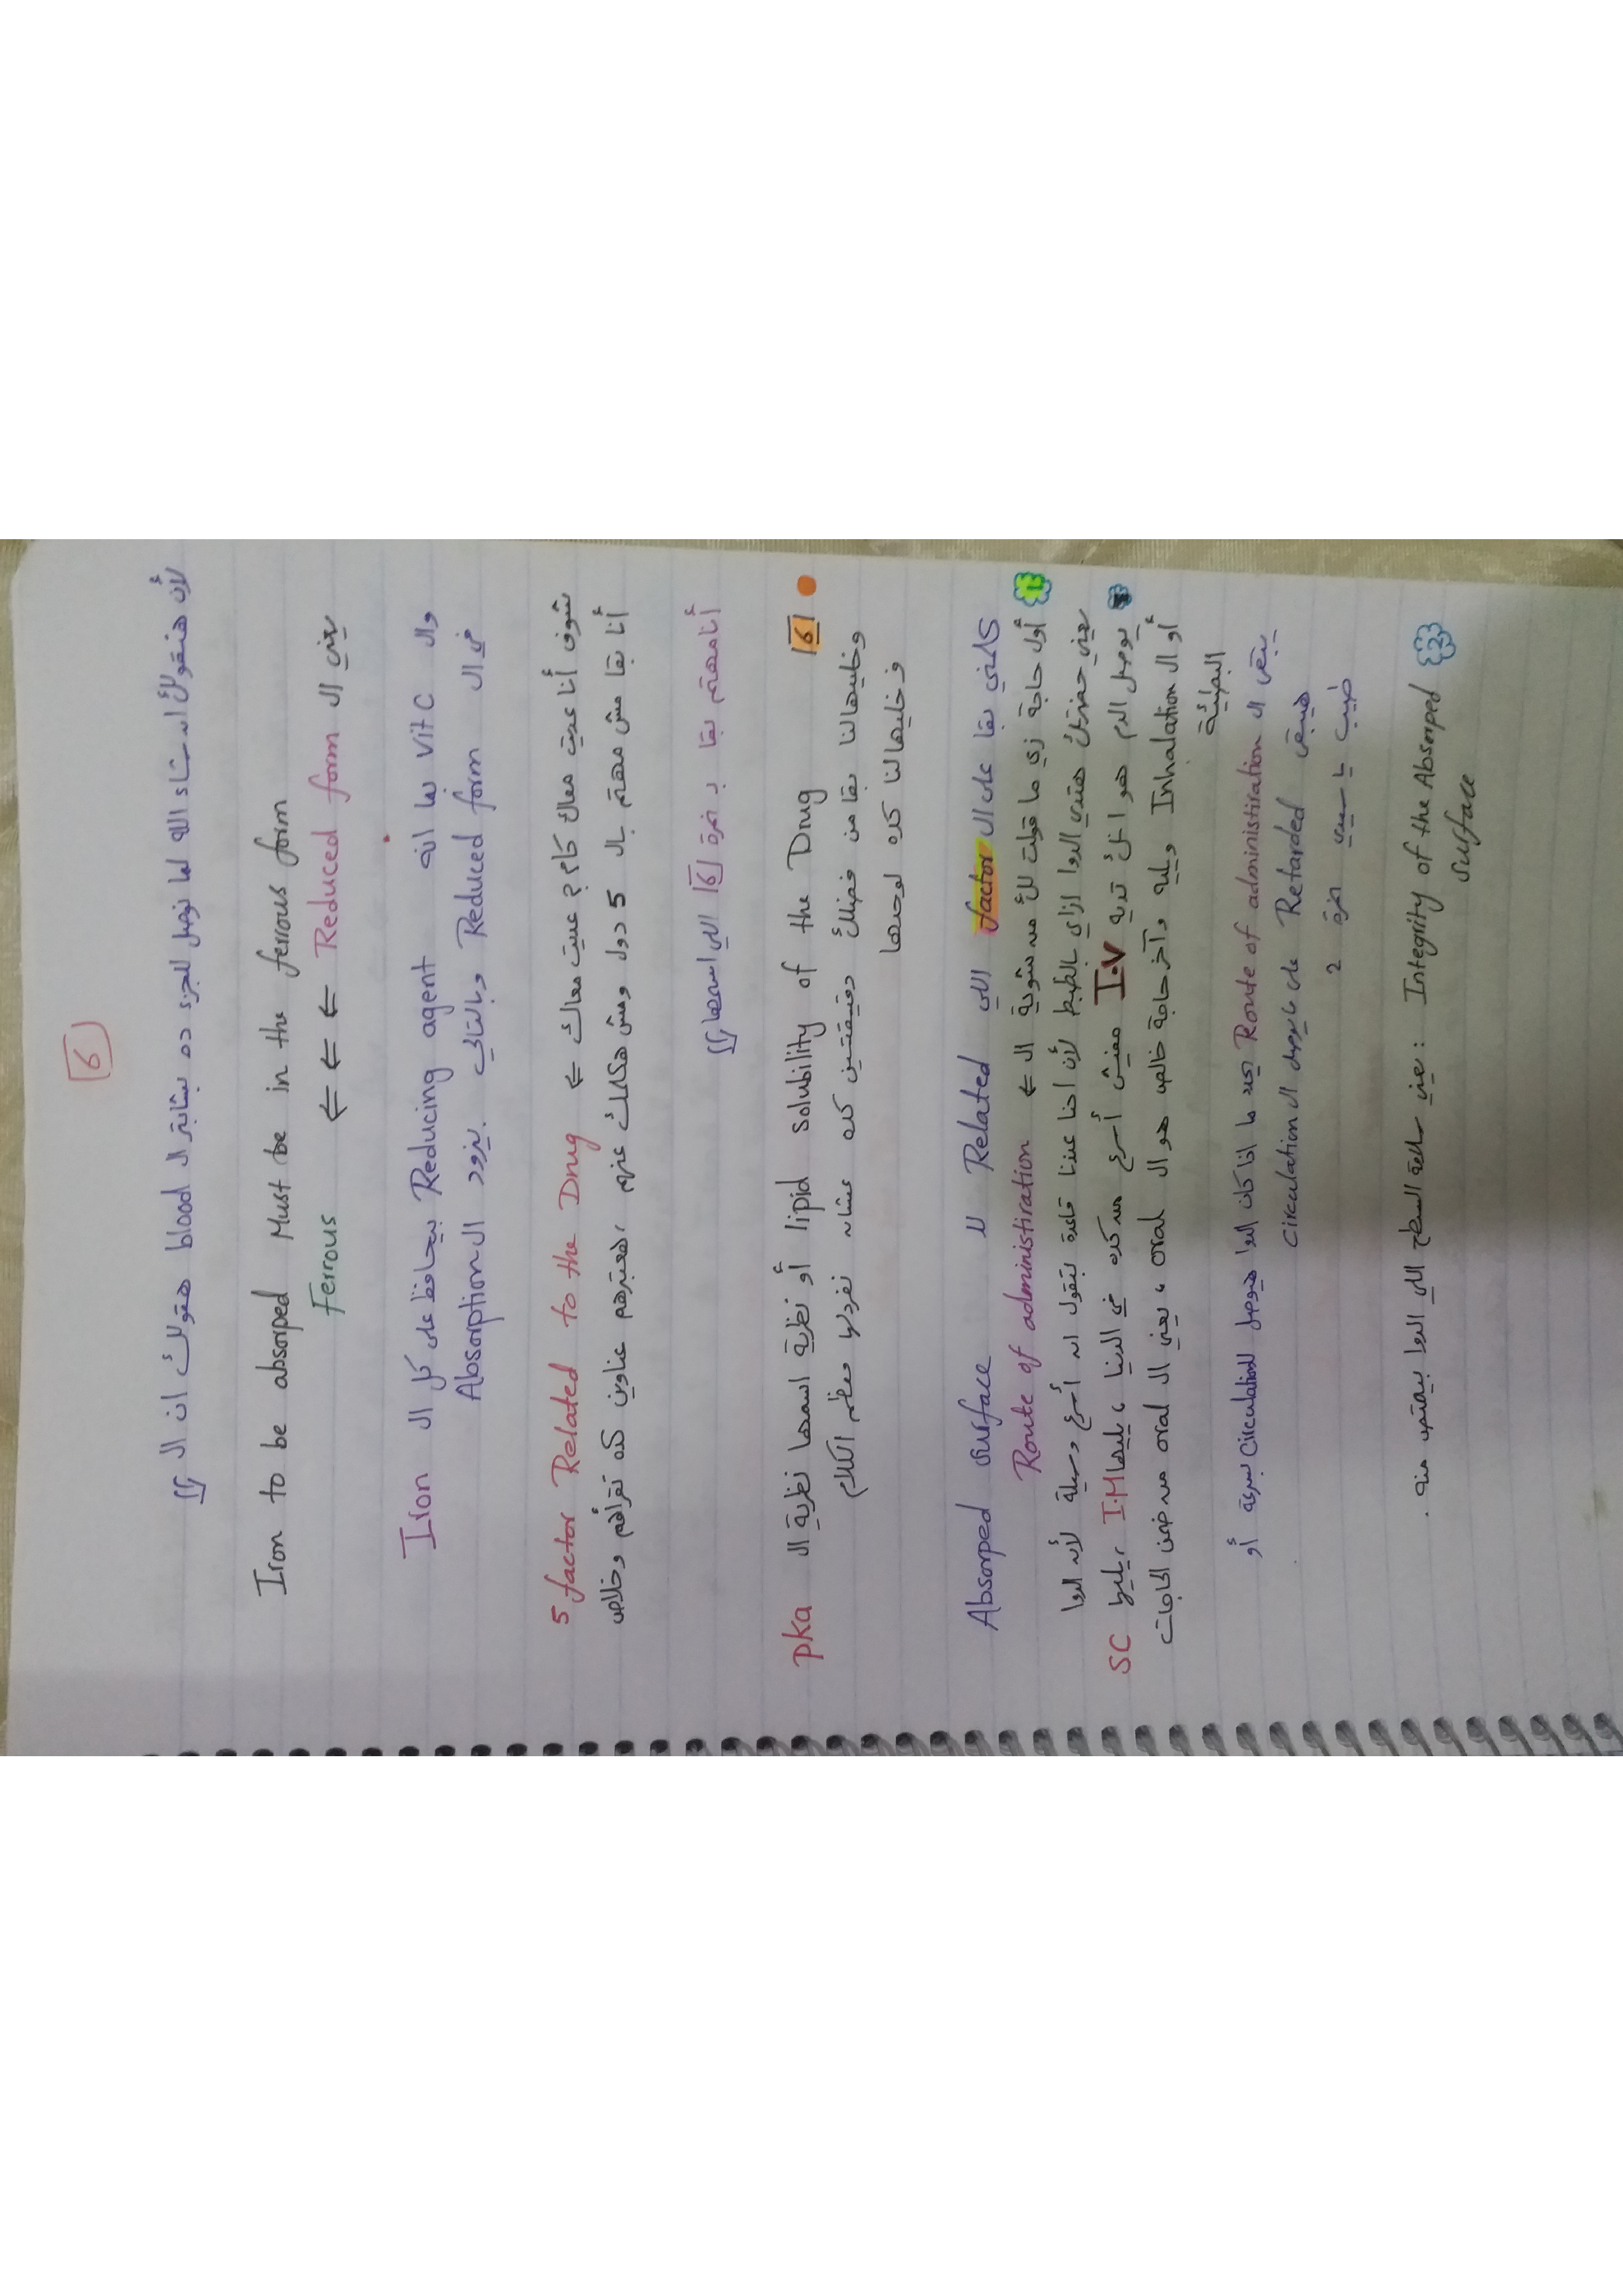 6
لأن هنقولك إن شاء الله لما نوصل للجزء ده بتاع الـ blood هقولك ان الـ "
Iron to be absorped Must be in the ferrous form
يعني الـ Reduced form ⇐ ⇐ ⇐ Ferrous
والـ Vit C بما انه Reducing agent بيحافظ على كل الـ Iron
في الـ Reduced form وبالتالي بيزود الـ Absorption
شوف أنا عديت معاك كام ؟ عديت معاك ⇐ 5 factor Related to the Drug
أنا بقا مش مهتم بالـ 5 دول ومش هكلمك عنهم ، هعتبرهم عناوين كده تقرأهم وخلاص
أنا مهتم بقا بـ نمرة 6 اللي اسمها "
6 lipid solubility of the Drug أو نظرية اسمها نظرية الـ pka
وخليهالنا بقا من فضلك دقيقتين كده عشان نفردلها معظم الكلام
فخليهالنا كده لوحدها
كلمني بقا على الـ factor اللي Related لـ Absorped surface
1 أول حاجة زي ما قولت لك من شوية الـ ⇐ Route of administiration
يعني حضرتك هتدي الدوا ازاي بالظبط لأن احنا عندنا قاعدة بتقول ان أسرع وسيلة لأن الدوا
يوصل الدم هو انك تديه I.V مفيش أسرع من كده في الدنيا ، يليها I.M ، يليها SC
أو الـ Inhalation ويليه وآخر حاجة خالص هو الـ oral ، يعني الـ oral من ضمن الحاجات
البطيئة
يبقى الـ Route of administiration تحدد ما اذا كان الدوا هيوصل للـ circulation بسرعة أو
هيبقى Retarded على ما يوصل الـ circulation
طيب يا سيدي نمرة 2
2 Integrity of the Absorped surface : يعني سلامة السطح اللي الدوا بيمتص منه .